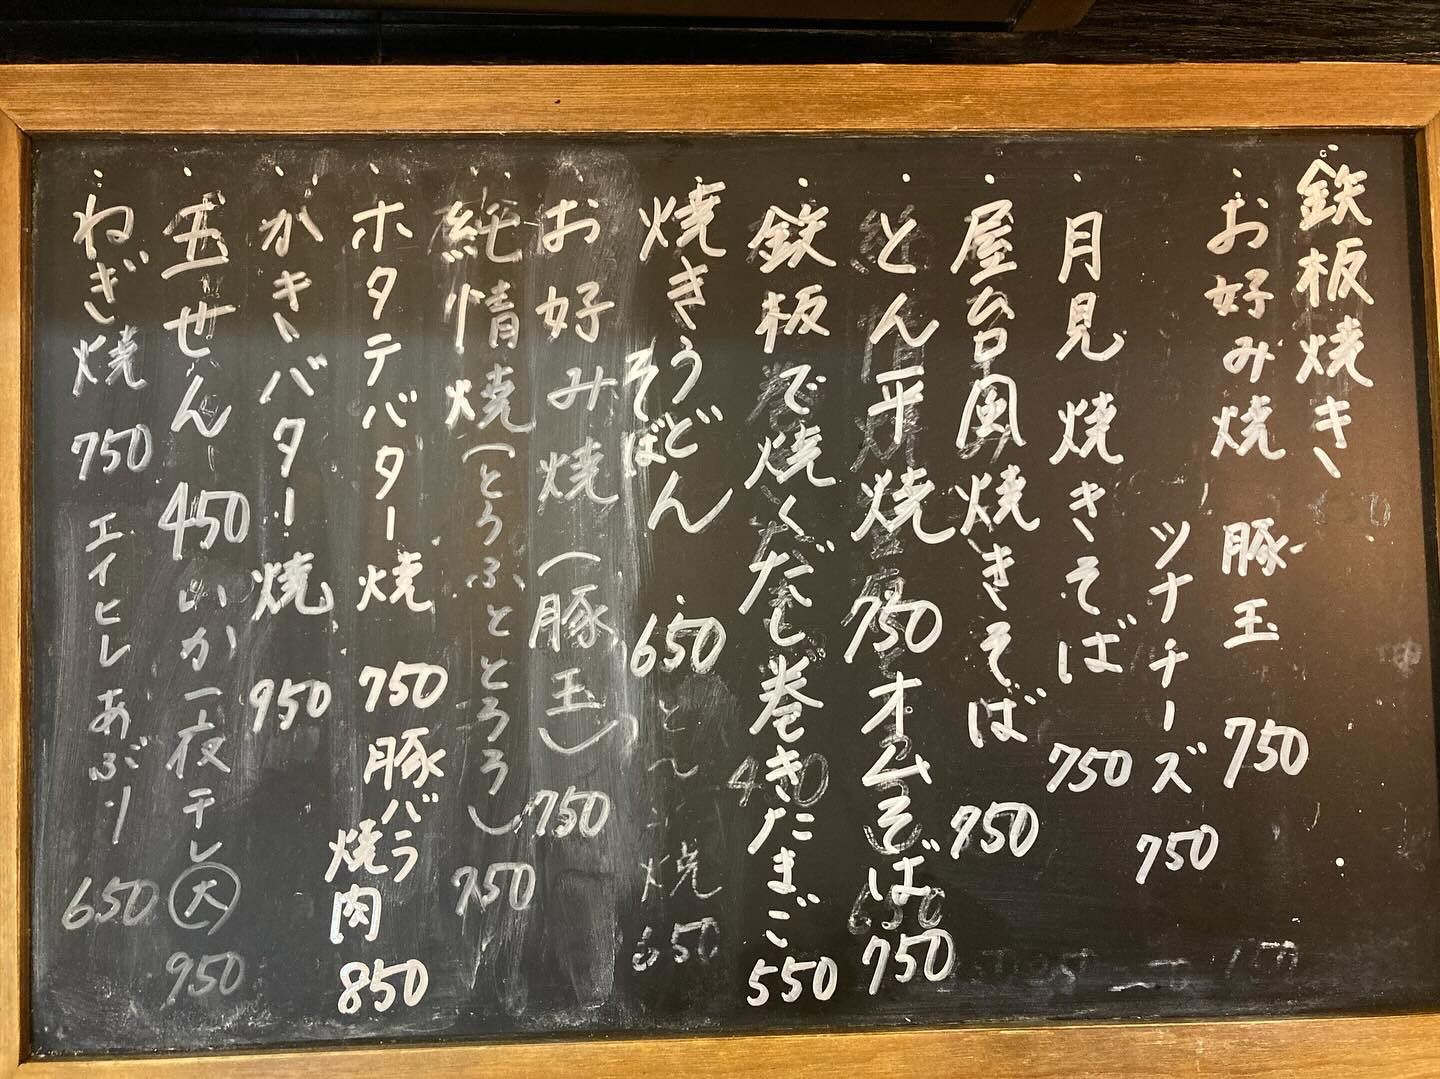 鉄板焼き
お好み焼 豚玉 750
ツナチーズ 750
月見焼きそば 750
屋台風焼きそば 750
とん平焼 750 オムそば 750
鉄板で焼くだし巻きたまご 550
焼きうどん
そば 650
焼 650
お好み焼(豚玉) 750
純情焼(とうふととろろ) 750
ホタテバター焼 750 豚バラ
焼肉 850
かきバター焼 950
玉せん 450 いか一夜干し(大) 950
ねぎ焼 750 エイヒレあぶり 650